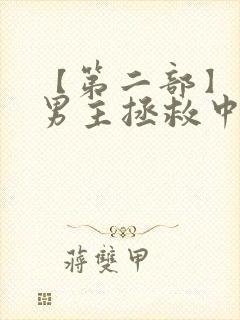 【第二部】
男主拯救中
蒋雙甲